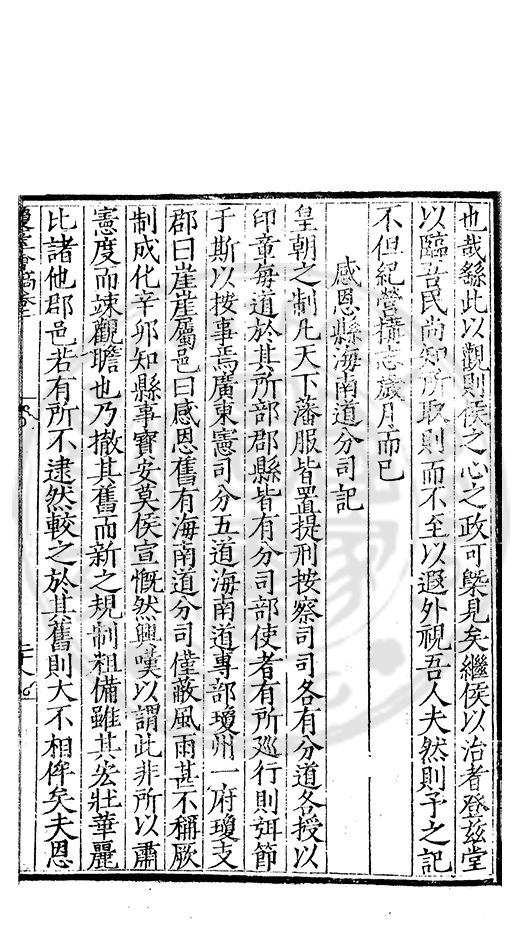 也哉繇此以觀則侯之心之政可槩見矣繼侯以治者登玆堂
以臨吾民尚知所取則而不至以遐外視吾人夫然則予之記
不但紀營構志歲月而已
感恩縣海南道分司記
皇朝之制凡天下藩服皆置提刑按察司司各有分道各授以
印章每道於其所部郡縣皆有分司部使者有所廵行則弭節
于斯以按事焉廣東憲司分五道海南道專部瓊州一府瓊支
郡曰崖崖屬邑曰感恩舊有海南道分司僅蔽風雨甚不稱厥
制成化辛卯知縣事寶安莫侯宣慨然興嘆以謂此非所以肅
憲度而竦觀瞻也乃撤其舊而新之規制粗備雖其宏壯華麗
比諸他郡邑若有所不逮然較之於其舊則大不相侔矣夫恩